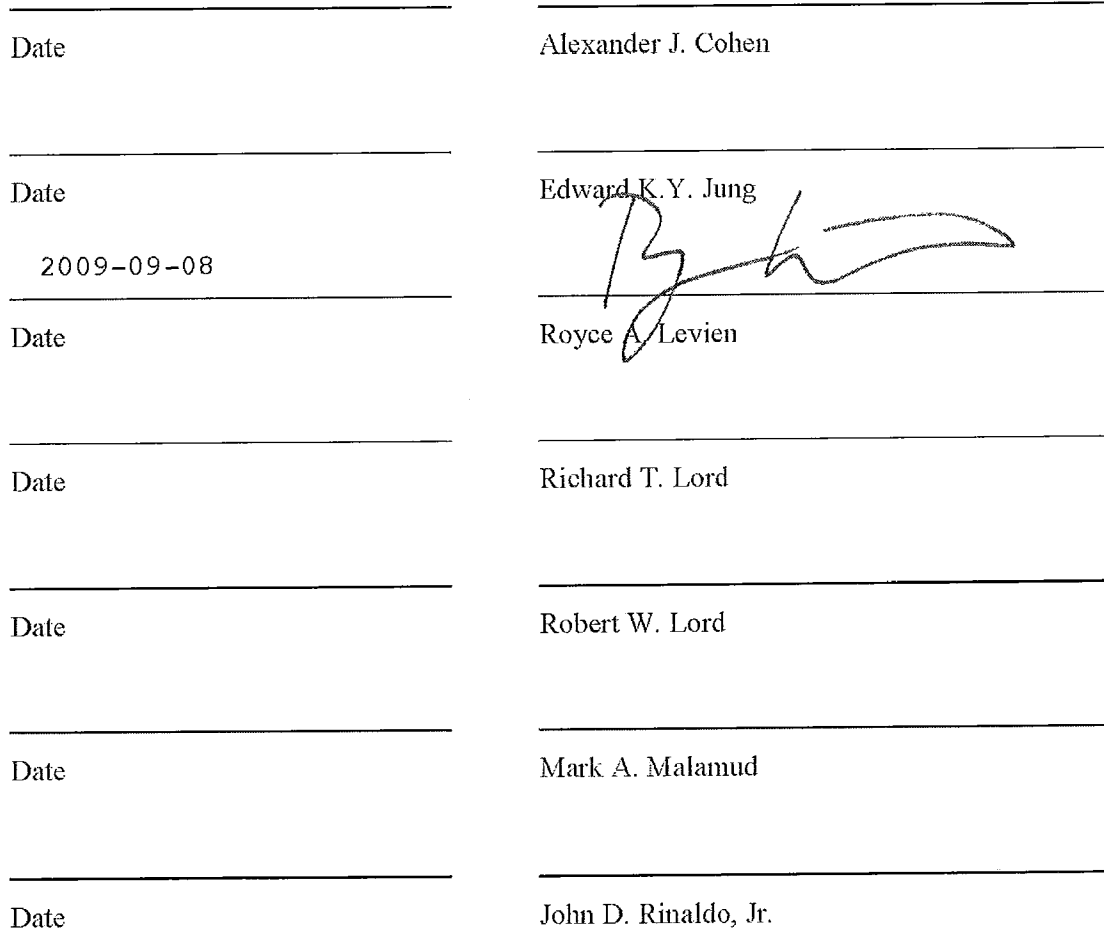 Date Alexander J. Cohen
Date Edward K.Y. Jung
2009-09-08
Date Royce A. Levien
Date Richard T. Lord
Date Robert W. Lord
Date Mark A. Malamud
Date John D. Rinaldo, Jr.